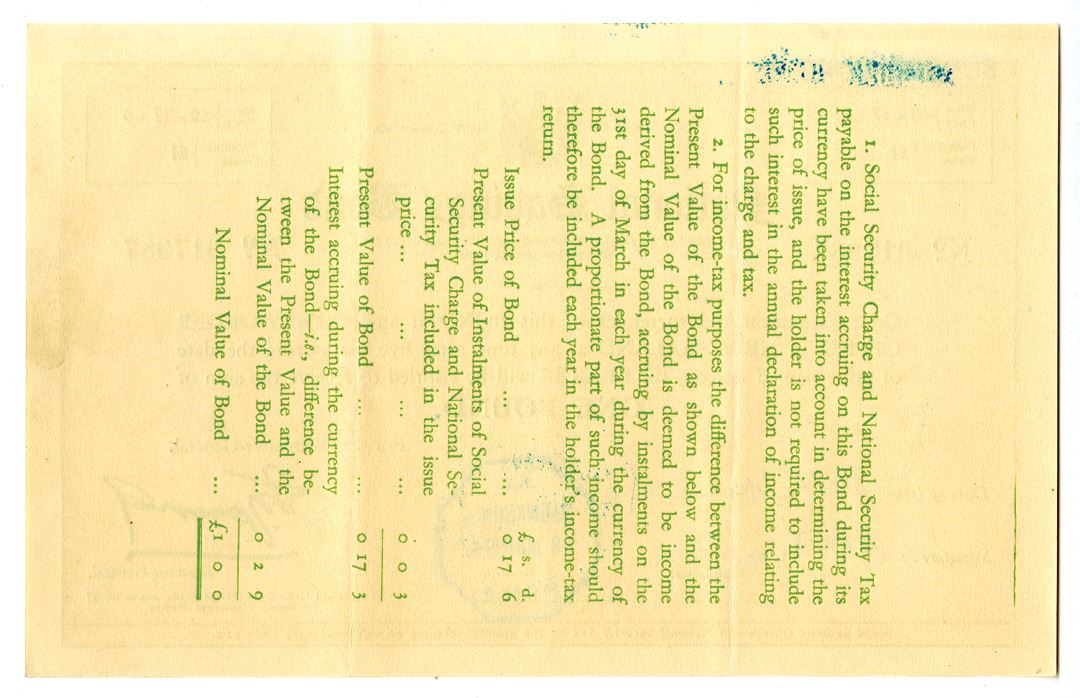 1. Social Security Charge and National Security Tax
payable on the interest accruing on this Bond during its
currency have been taken into account in determining the
price of issue, and the holder is not required to include
such interest in the annual declaration of income relating
to the charge and tax.
2. For income-tax purposes the difference between the
Present Value of the Bond as shown below and the
Nominal Value of the Bond is deemed to be income
derived from the Bond, accruing by instalments on the
31st day of March in each year during the currency of
the Bond. A proportionate part of such income should
therefore be included each year in the holder's income-tax
return.
£ s. d.
Issue Price of Bond ... ... 0 17 6
Present Value of Instalments of Social
Security Charge and National Se-
curity Tax included in the issue
price ... ... ... ... 0 0 3
Present Value of Bond ... ... 0 17 3
Interest accruing during the currency
of the Bond—i.e., difference be-
tween the Present Value and the
Nominal Value of the Bond ... 0 2 9
Nominal Value of Bond ... £1 0 0